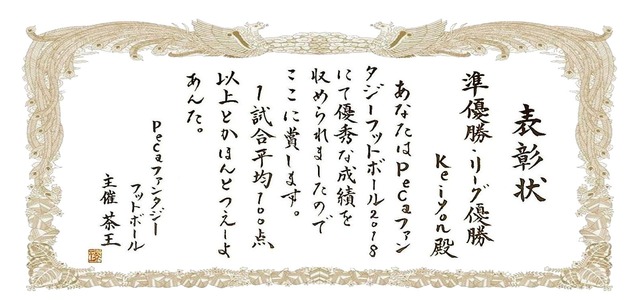 表彰状
準優勝・リーグ優勝
Keiyon殿
あなたはPeCaファン
タジーフットボール2018
にて優秀な成績を
収められましたので
ここに賞します。
1試合平均100点
以上とかほんとつえーよ
あんた。
PeCaファンタジー
フットボール
主催 茶王